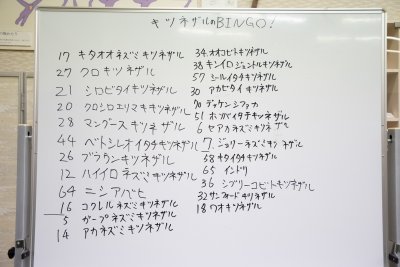 キツネザルのBINGO!
17 キタオオネズミキツネザル
27 クロキツネザル
21 シロビタイキツネザル
20 クロシロエリマキキツネザル
28 マングースキツネザル
44 ベトシレオイタチキツネザル
26 ブラウンキツネザル
12 ハイイロネズミキツネザル
64 ニシアバヒ
16 コクレルネズミキツネザル
5 ガープネズミキツネザル
14 アカネズミキツネザル
34 オオコビトキツネザル
38 キンイロジェントルキツネザル
57 シールイタチキツネザル
30 アカビタイキツネザル
70 デッケンシファカ
51 ホソバイタチキツネザル
6 セアカネズミキツネザル
7. ジョリーネズミキツネザル
58 キタイタチキツネザル
65 インドリ
36 シブリーコビトキツネザル
32 サンフォードキツネザル
18 ワオキツネザル